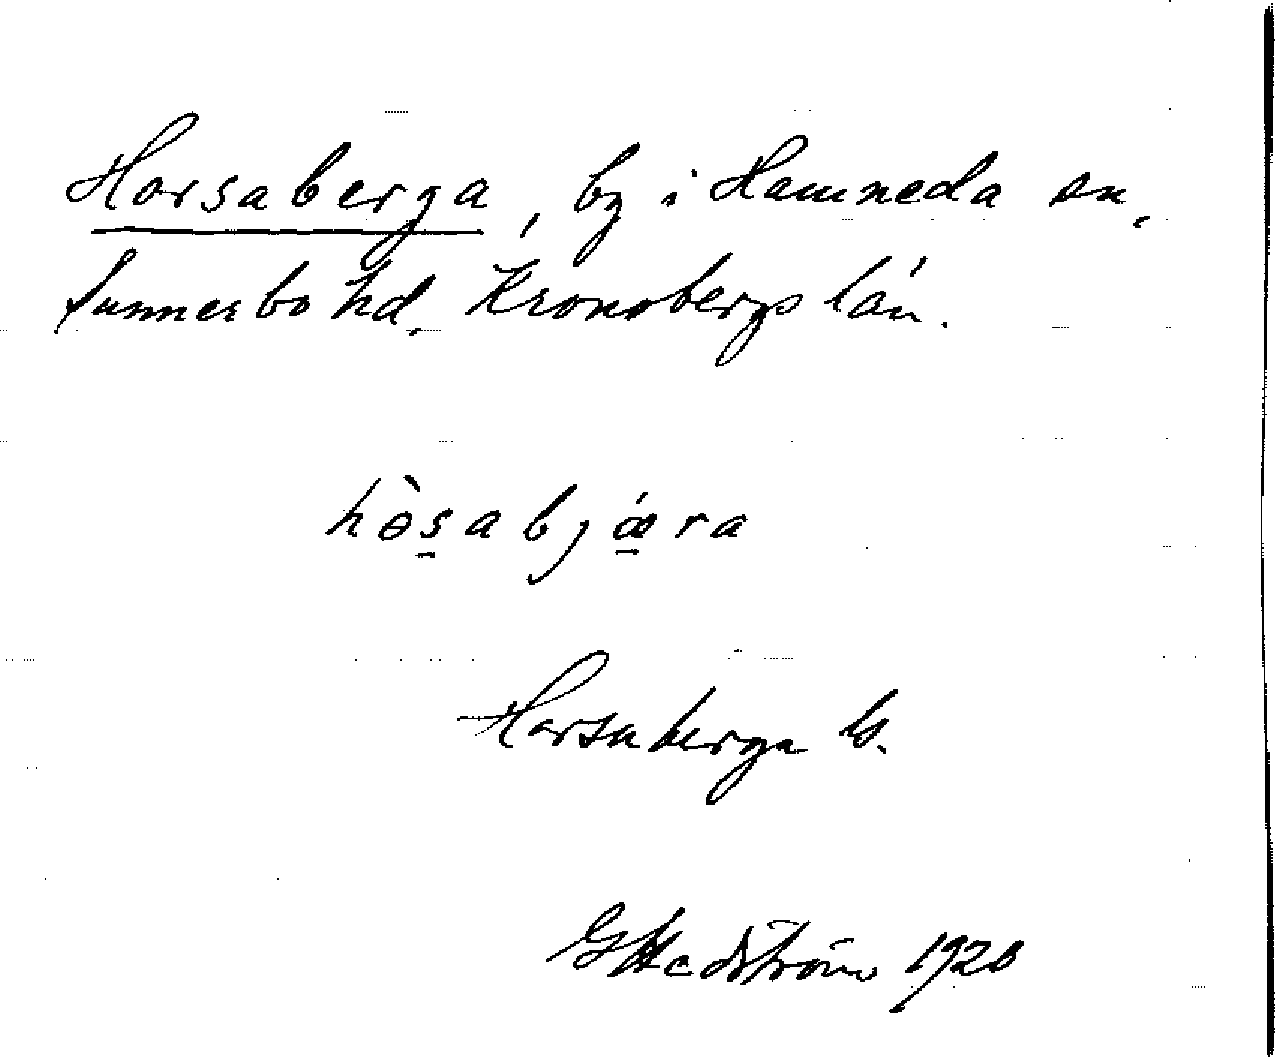 Horsaberga, by i Hamneda sn,
Sunnerbo hd. Kronobergs län.
hòsabjǽra
Horsaberga G.
G Hedström 1920